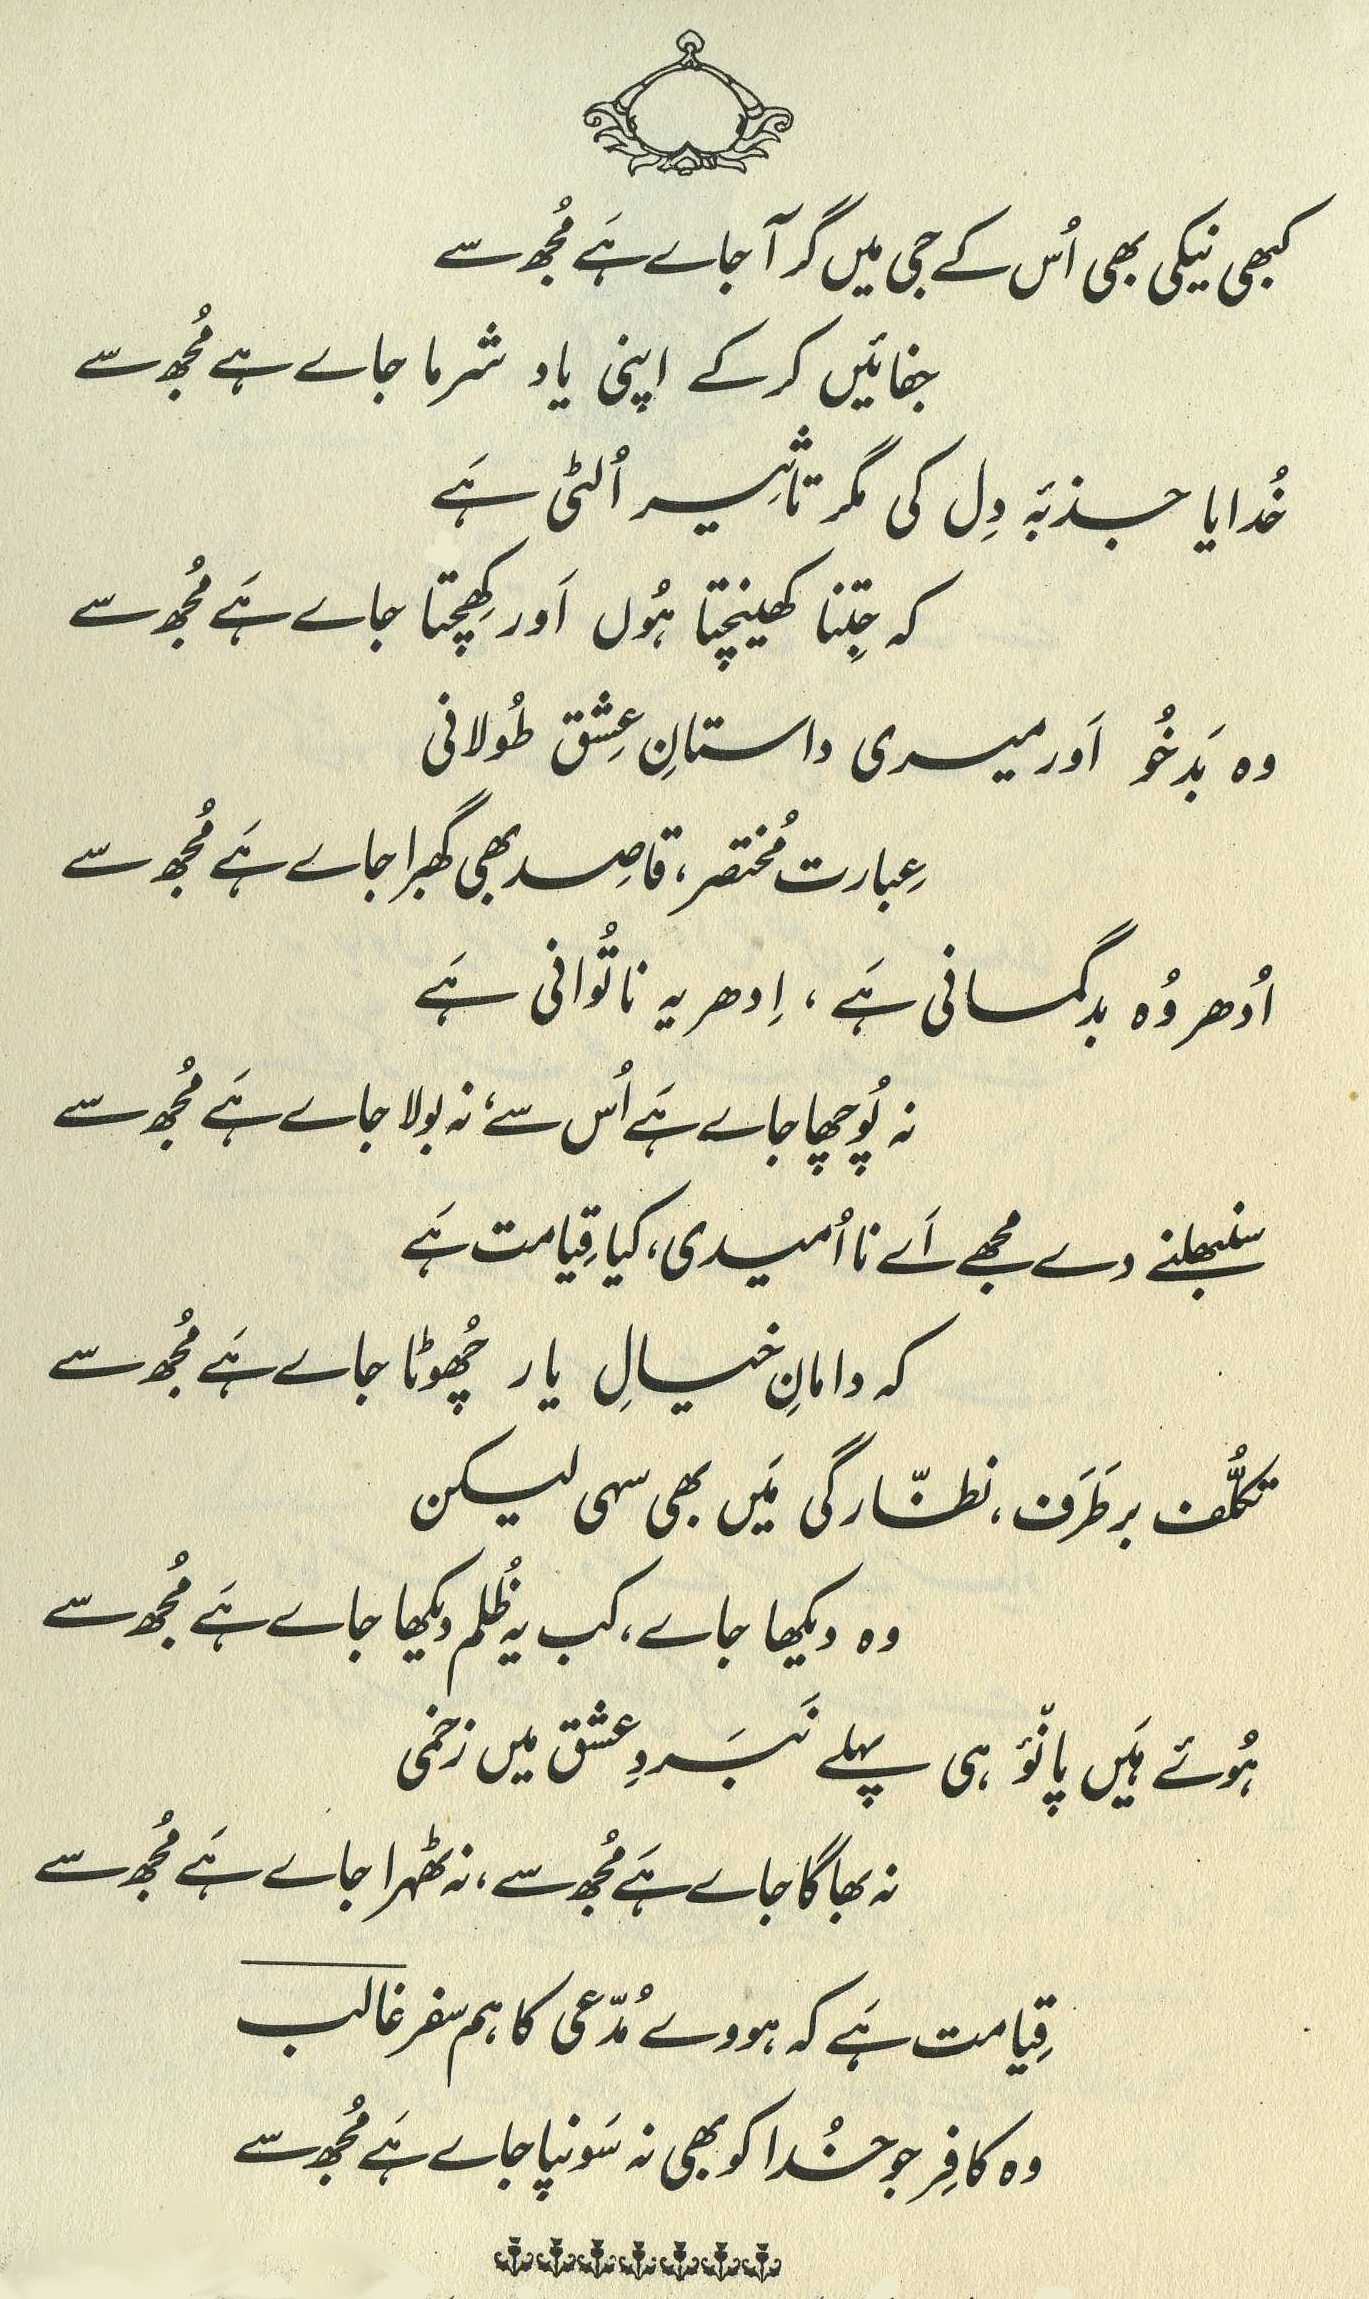 کبھی نیکی بھی اُس کے جی میں گر آ جاے ہَے مُجھ سے
جفائیں کر کے اپنی یاد شرما جاے ہے مُجھ سے
خُدایا جذبۂ دِل کی مگر تاثیر اُلٹی ہَے
کہ جِتنا کھینچتا ہُوں اَور کِھچتا جاے ہَے مُجھ سے
وہ بَدخُو اَور میری داستانِ عِشق طُولانی
عِبارت مُختصر، قاصِد بھی گھبرا جاے ہَے مُجھ سے
اُدھر وُہ بدگمانی ہَے، اِدھر یہ ناتُوانی ہَے
نہ پُوچھا جاے ہَے اُس سے، نہ بولا جاے ہَے مُجھ سے
سنبھلنے دے مجھے اَے نااُمیدی، کیا قِیامت ہَے
کہ دامانِ خیالِ یار چُھوٹا جاے ہَے مُجھ سے
تکلُّف بر طَرَف، نظّارگی مَیں بھی سہی لیکن
وہ دیکھا جاے، کب یہ ظُلم دیکھا جاے ہَے مُجھ سے
ہُوئے ہَیں پانّو ہی پہلے نَبَردِ عشق میں زخمی
نہ بھاگا جاے ہَے مُجھ سے، نہ ٹھہرا جاے ہَے مُجھ سے
قِیامت ہَے کہ ہووے مُدّعی کا ہم سفر غالب
وہ کافِر جو خُدا کو بھی نہ سَونپا جاے ہَے مُجھ سے